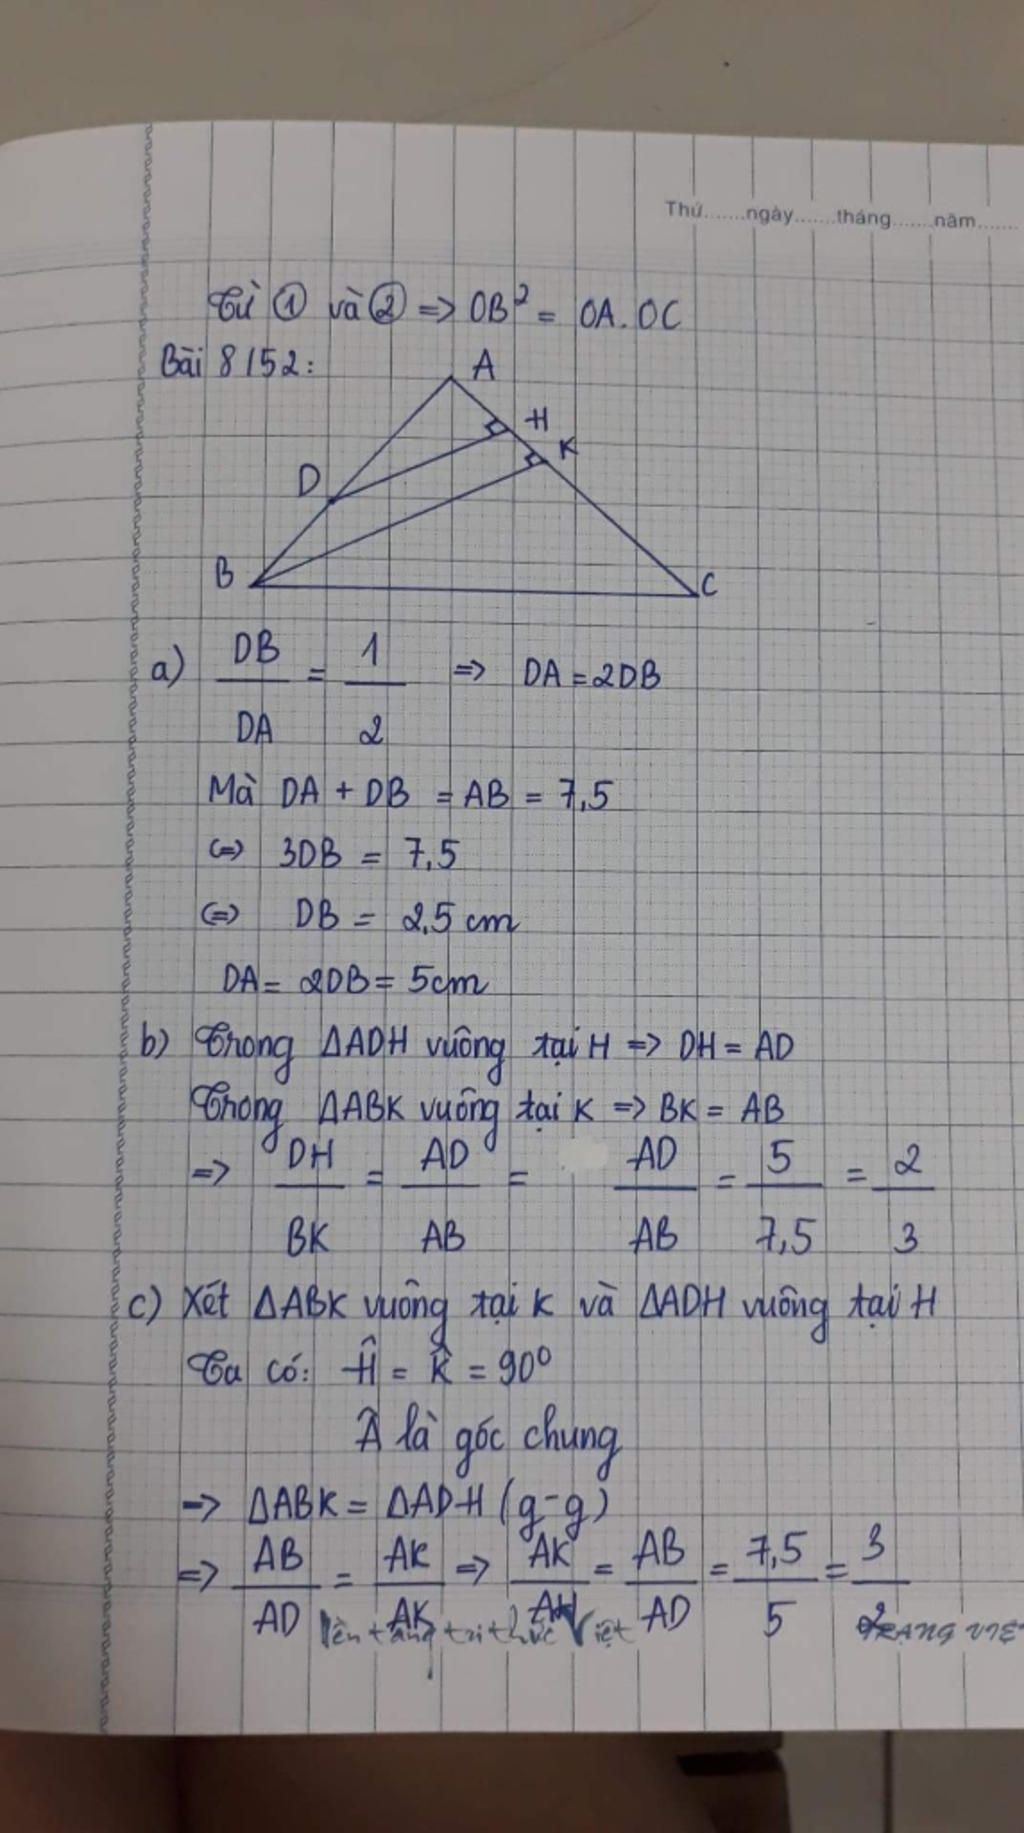 Thứ.......ngày.......tháng.......năm.......
Từ ① và ② => OB² = OA.OC
Bài 8/52:
A
H
K
D
B
C
a) DB/DA = 1/2 => DA = 2DB
Mà DA + DB = AB = 7,5
<=> 3DB = 7,5
<=> DB = 2,5 cm
DA = 2DB = 5cm
b) Trong ΔADH vuông tại H => DH = AD
Trong ΔABK vuông tại K => BK = AB
=> DH/BK = AD/AB = AD/AB = 5/7,5 = 2/3
c) Xét ΔABK vuông tại K và ΔADH vuông tại H
Ta có: Ĥ = K̂ = 90⁰
Â là góc chung
=> ΔABK = ΔADH (g-g)
=> AB/AD = AK/AK => AK/AH = AB/AD = 7,5/5 = 3/2
Nền tảng tri thức Việt
TRANG VIỆ